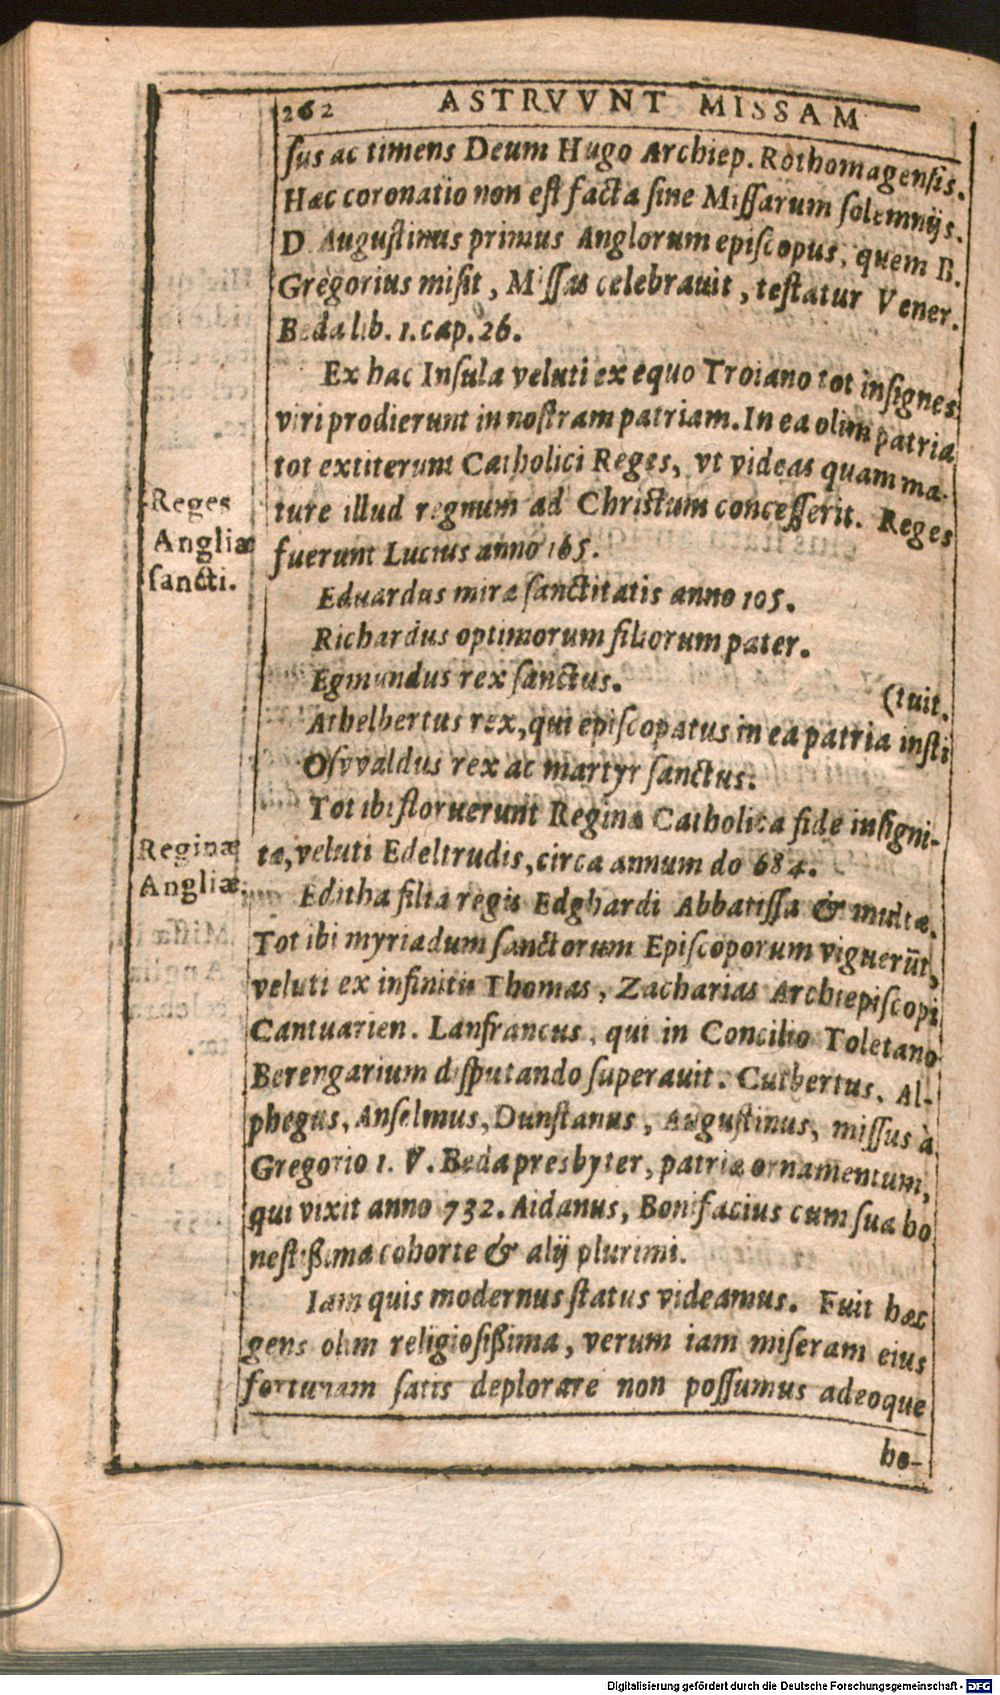 262 ASTRVVNT MISSAM
sus ac timens Deum Hugo Archiep. Rothomagensis.
Hæc coronatio non est facta sine Missarum solemnijs.
D. Augustinus primus Anglorum episcopus, quem B.
Gregorius misit, Missas celebrauit, testatur Vener.
Beda lib. 1. cap. 26.
Ex hac Insula veluti ex equo Troiano tot insignes
viri prodierunt in nostram patriam. In ea olim patria
tot extiterunt Catholici Reges, vt videas quam ma-
ture illud regnum ad Christum concesserit. Reges
fuerunt Lucius anno 165.
Reges
Angliæ
sancti.
Eduardus miræ sanctitatis anno 105.
Richardus optimorum filiorum pater.
Egmundus rex sanctus.
(tuit.
Athelbertus rex, qui episcopatus in ea patria insti
Osvvaldus rex ac martyr sanctus.
Tot ibi floruerunt Reginæ Catholica fide insigni-
tæ, veluti Edeltrudis, circa annum do 684.
Reginæ
Angliæ.
Editha filia regis Edghardi Abbatissa & multæ.
Tot ibi myriadum sanctorum Episcoporum viguerūt,
veluti ex infinitis Thomas, Zacharias Archiepiscopi
Cantuarien. Lanfrancus, qui in Concilio Toletano
Berengarium disputando superauit. Cutbertus, Al-
phegus, Anselmus, Dunstanus, Augustinus, missus à
Gregorio 1. V. Beda presbyter, patriæ ornamentum,
qui vixit anno 732. Aidanus, Bonifacius cum sua ho
nestißima cohorte & alij plurimi.
Iam quis modernus status videamus. Fuit hæc
gens olim religiosißima, verum iam miseram eius
fortunam satis deplorare non possumus adeoque
ho-
Digitalisierung gefördert durch die Deutsche Forschungsgemeinschaft - DFG